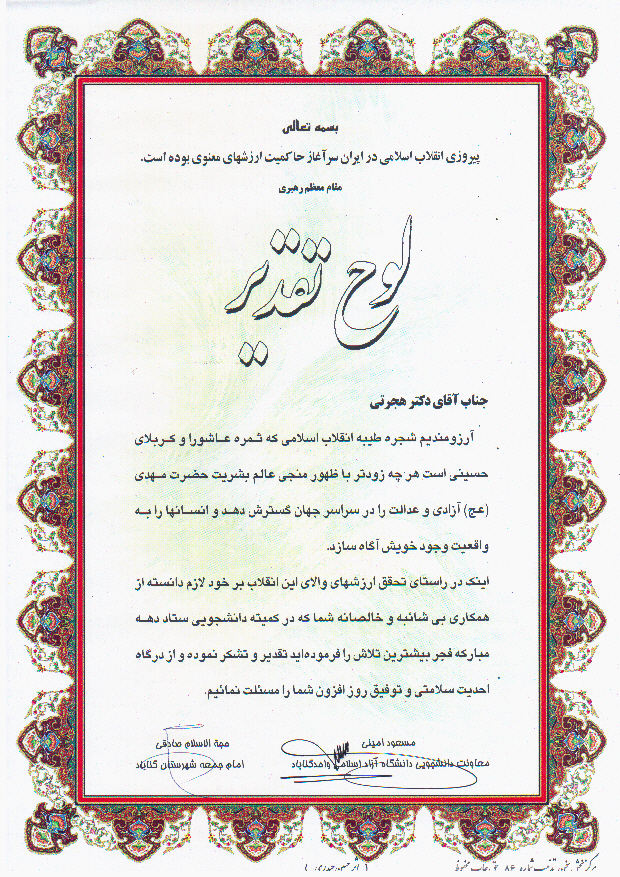 بسمه تعالی
پیروزی انقلاب اسلامی در ایران سرآغاز حاکمیت ارزشهای معنوی بوده است.
مقام معظم رهبری
لوح تقدیر
جناب آقای دکتر هجرتی
آرزومندیم شجره طیبه انقلاب اسلامی که ثمره عاشورا و کربلای
حسینی است هر چه زودتر با ظهور منجی عالم بشریت حضرت مهدی
(عج) آزادی و عدالت را در سراسر جهان گسترش دهد و انسانها را به
واقعیت وجود خویش آگاه سازد.
اینک در راستای تحقق ارزشهای والای این انقلاب بر خود لازم دانسته از
همکاری بی شائبه و خالصانه شما که در کمیته دانشجویی ستاد دهه
مبارکه فجر بیشترین تلاش را فرموده‌اید تقدیر و تشکر نموده و از درگاه
احدیت سلامتی و توفیق روز افزون شما را مسئلت نمائیم.
مسعود امینی
معاونت دانشجویی دانشگاه آزاد اسلامی واحد گناباد
حجة الاسلام صادقی
امام جمعه شهرستان گناباد